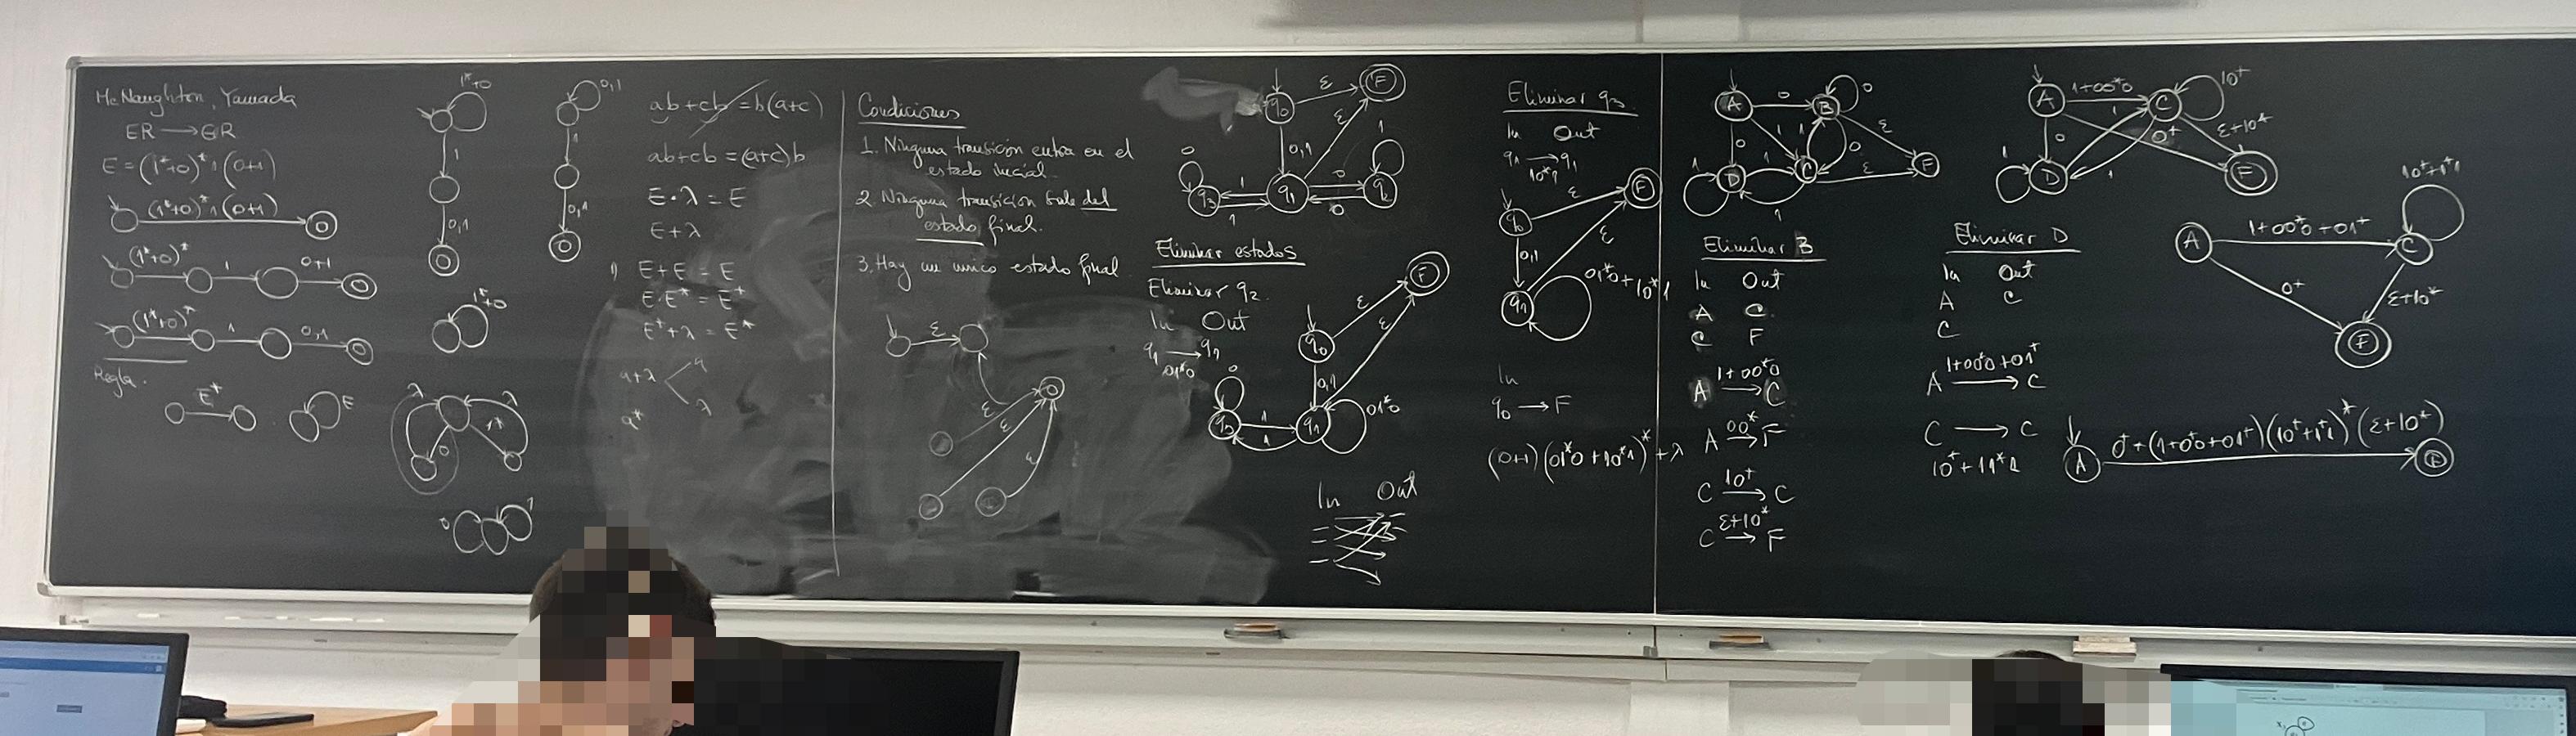 McNaughton, Yamada
ER → ER
E = (1*+0)*1(0+1)
(1*+0)*1(0+1)
(1*+0)* 1 0+1
(1*+0)* 1 0,1
Regla.
E* E
1*+0
1
0,1
0,1
1
0,1
1*+0
λ λ
0 1*
0 1
ab+cb = b(a+c)
ab+cb = (a+c)b
E·λ = E
E+λ
E+E = E
E·E* = E⁺
E⁺+λ = E*
a+λ a
λ
a*
Condiciones
1. Ninguna transición entra en el
estado inicial.
2. Ninguna transición sale del
estado final.
3. Hay un unico estado final
ε
ε
ε
ε
q0 ε F
0,1 ε
0 1
q3 1 q1 0 q2
1 0
Eliminar estados
Eliminar q2.
In Out
q1 → q1
01*0
ε F
q0 ε
0 0,1
q3 1 q1 01*0
1
In Out
Eliminar q3
In Out
q1 → q1
10*1
q0 ε F
0,1 ε
q1 01*0+10*1
In
q0 → F
(0+1)(01*0+10*1)*+λ
A 0 B 0
0 1 1 0 ε
1 D 1 C ε F
1
Eliminar B
In Out
A C
C F
A 1+00*0 → C
A 00* → F
C 10⁺ → C
C ε+10* → F
A 1+00*0 C 10⁺
0 1 0⁺ ε+10*
1 D 1 F
Eliminar D
In Out
A C
C
A 1+00*0+01⁺ → C
C → C
10⁺+11*1
10⁺+1⁺1
A 1+00*0+01⁺ C
0⁺ ε+10*
F
A 0⁺+(1+0⁺0+01⁺)(10⁺+1⁺1)*(ε+10*)